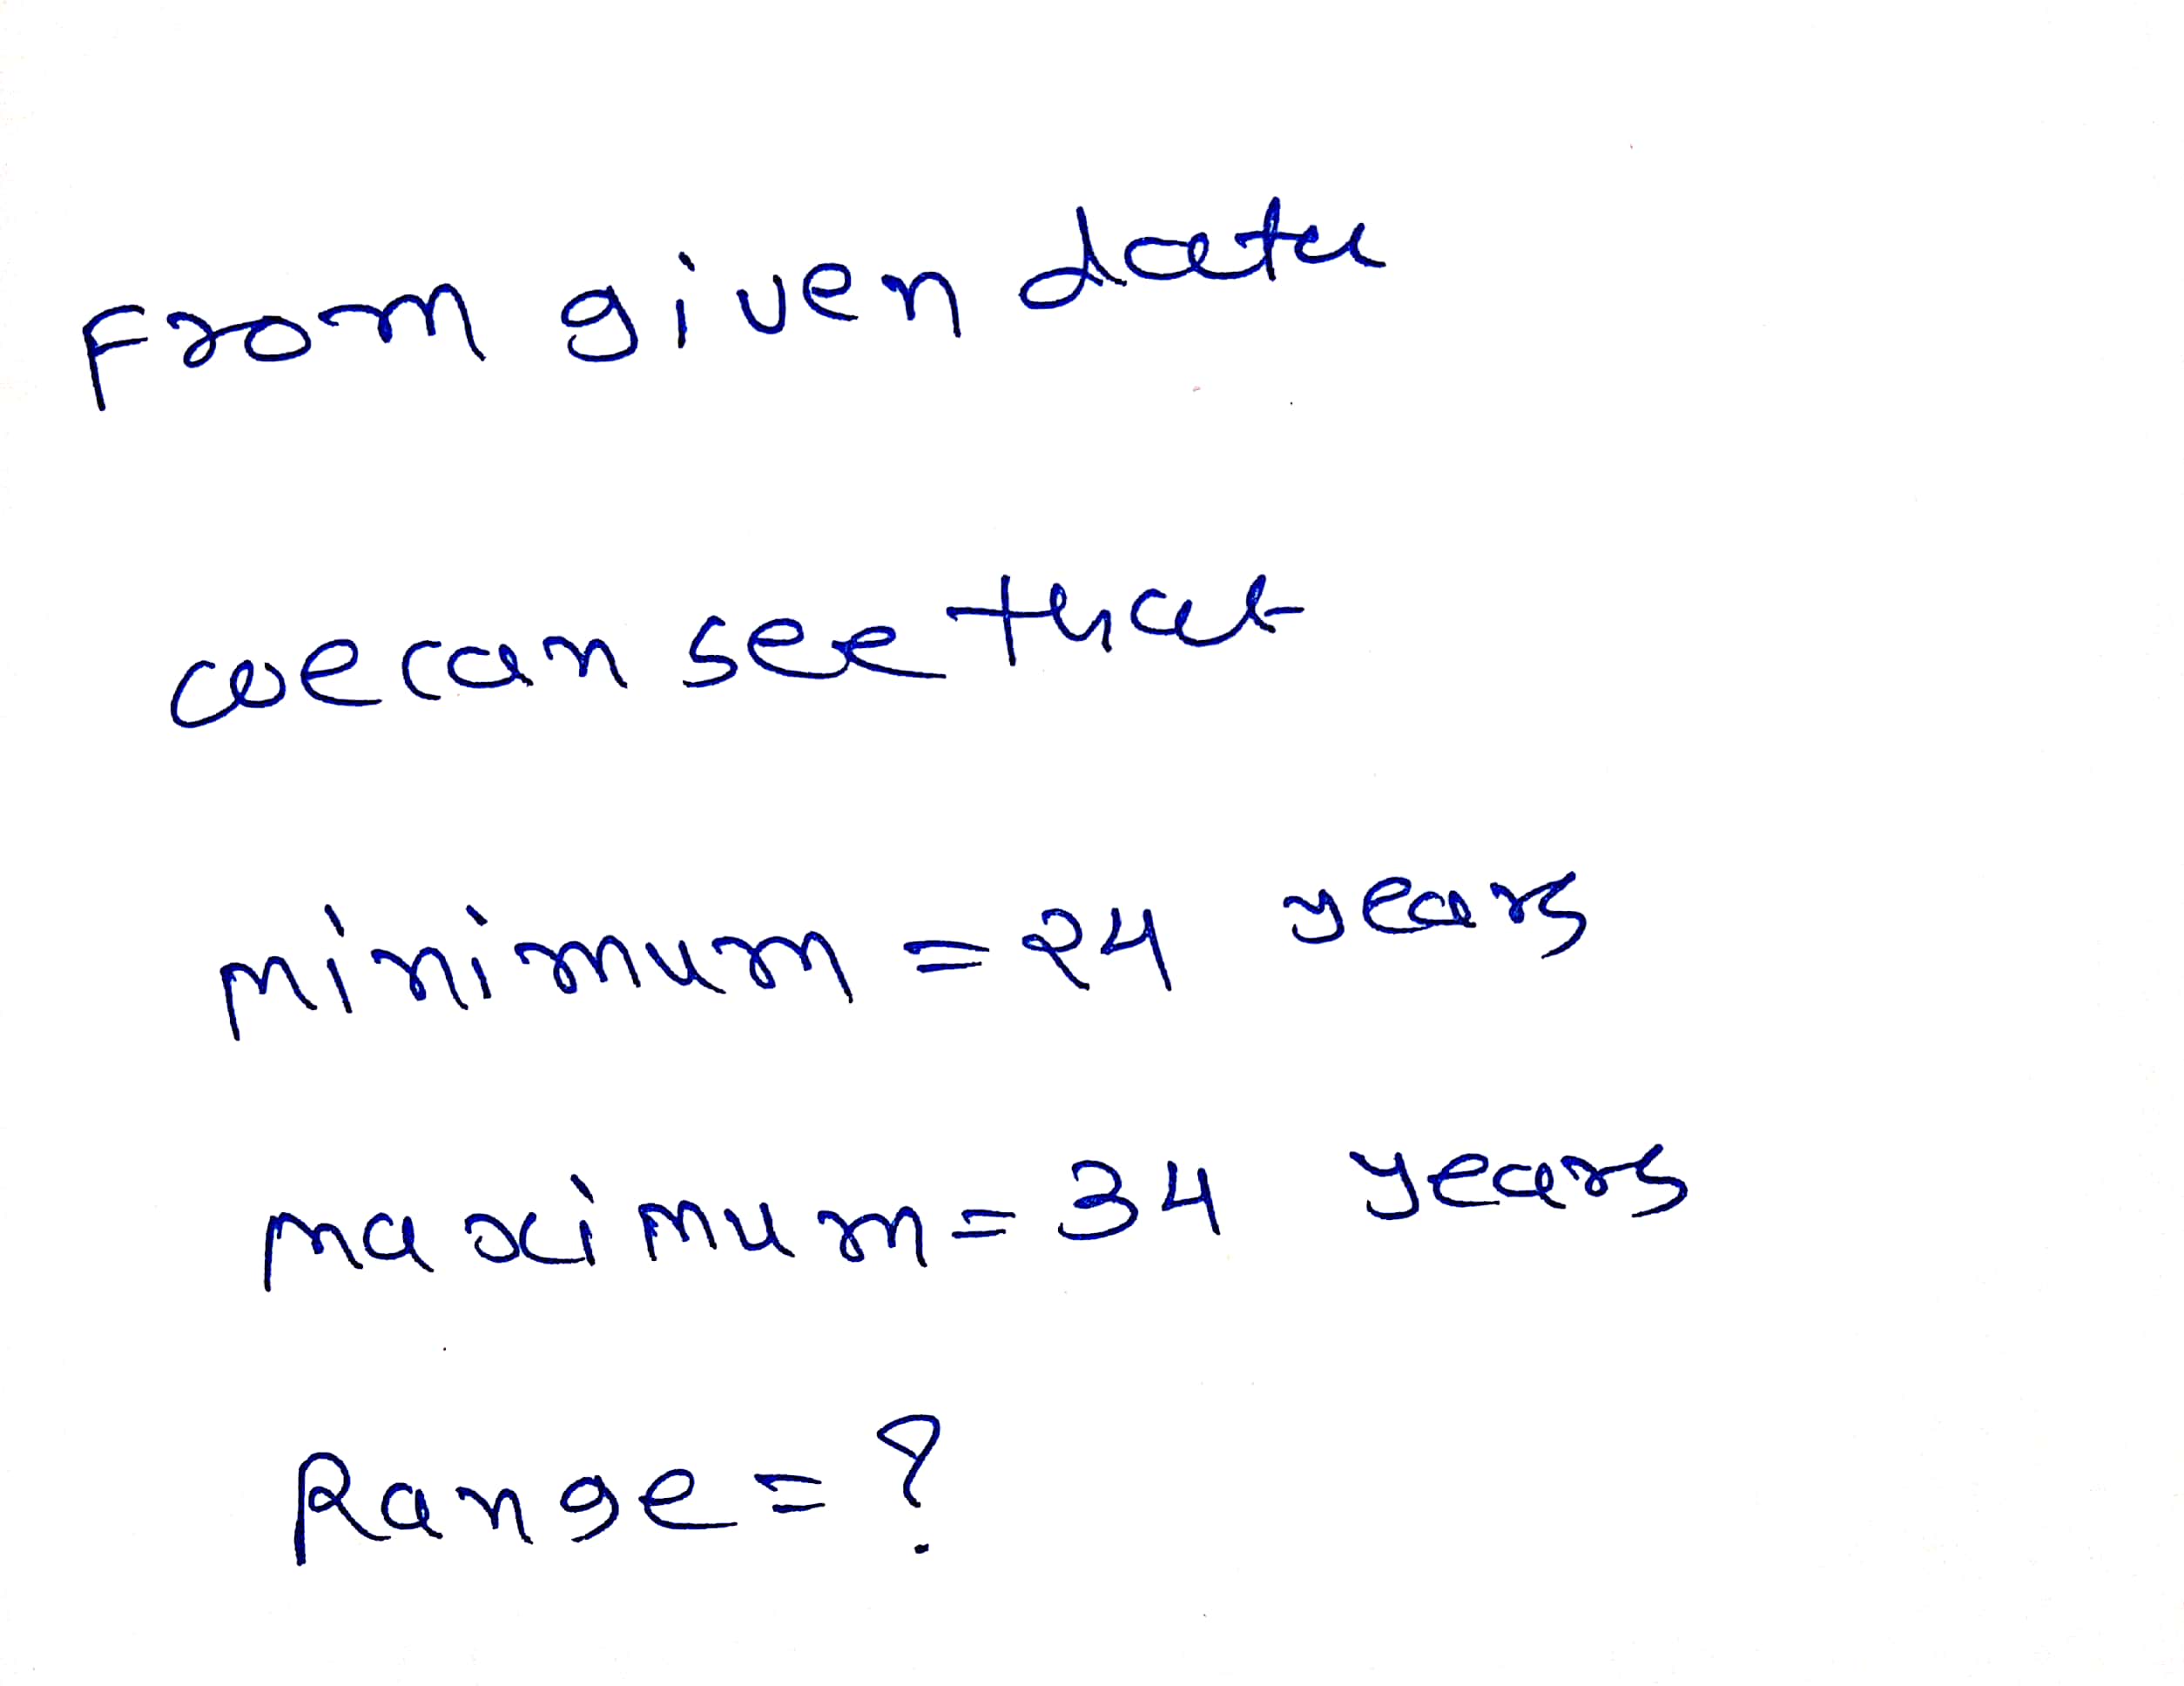 From given data
we can see that
Minimum = 24 years
maximum = 34 years
Range = ?